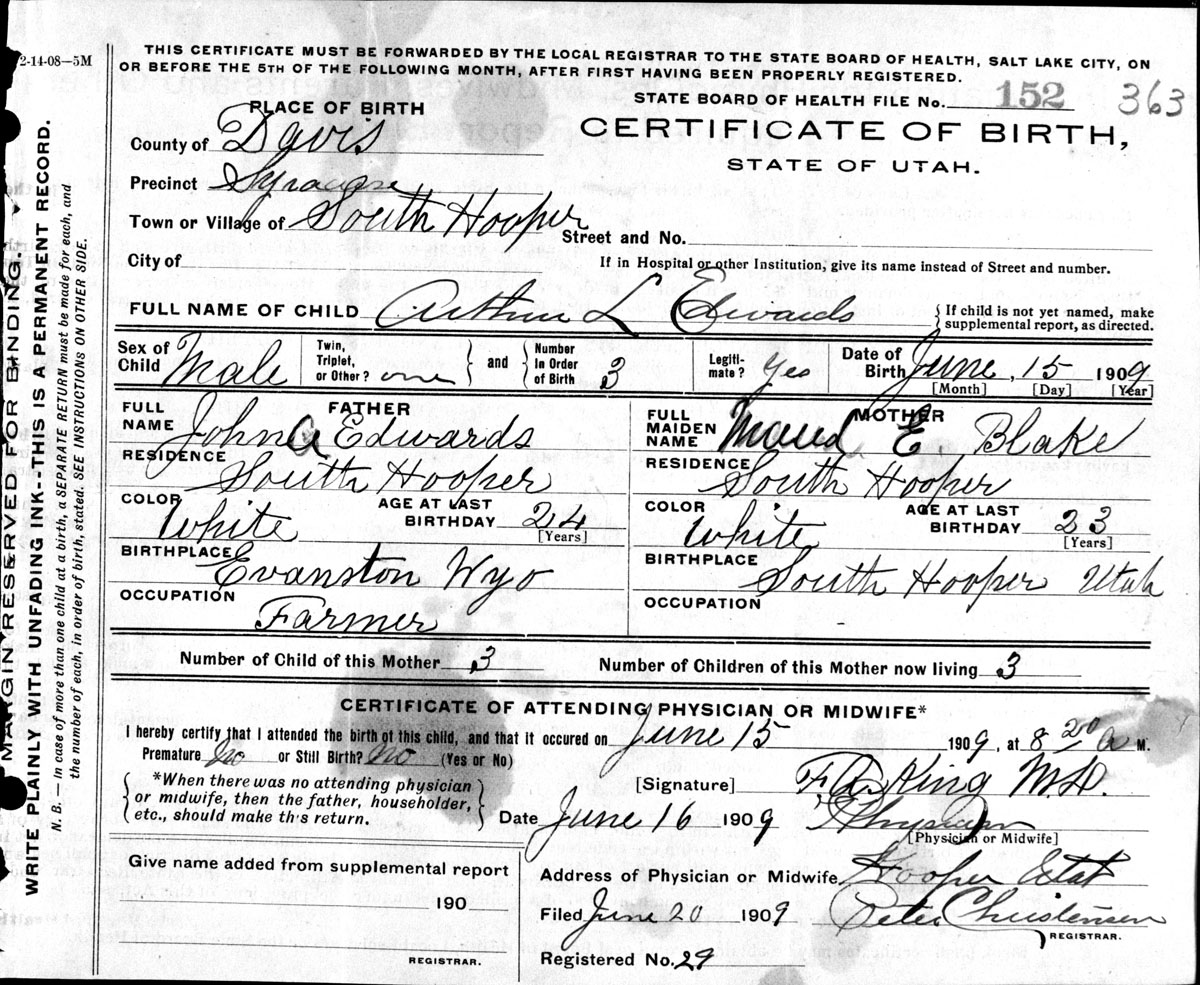 2-14-08—5M
THIS CERTIFICATE MUST BE FORWARDED BY THE LOCAL REGISTRAR TO THE STATE BOARD OF HEALTH, SALT LAKE CITY, ON
OR BEFORE THE 5TH OF THE FOLLOWING MONTH, AFTER FIRST HAVING BEEN PROPERLY REGISTERED.
STATE BOARD OF HEALTH FILE No. 152 363
CERTIFICATE OF BIRTH,
STATE OF UTAH.
PLACE OF BIRTH
County of Davis
Precinct Syracuse
Town or Village of South Hooper
Street and No.
City of
If in Hospital or other Institution, give its name instead of Street and number.
FULL NAME OF CHILD Arthur L Edwards
{ If child is not yet named, make
supplemental report, as directed.
Sex of Child Male
Twin, Triplet, or Other? one } and { Number in Order of Birth 3
Legiti-mate? Yes
Date of Birth June 15 1909
[Month] [Day] [Year]
FATHER
FULL NAME John A Edwards
RESIDENCE South Hooper
COLOR White AGE AT LAST BIRTHDAY 24
[Years]
BIRTHPLACE Evanston Wyo
OCCUPATION Farmer
MOTHER
FULL MAIDEN NAME Maud E Blake
RESIDENCE South Hooper
COLOR White AGE AT LAST BIRTHDAY 23
[Years]
BIRTHPLACE South Hooper Utah
OCCUPATION
Number of Child of this Mother 3 Number of Children of this Mother now living 3
CERTIFICATE OF ATTENDING PHYSICIAN OR MIDWIFE*
I hereby certify that I attended the birth of this child, and that it occured on June 15 1909, at 8 20 a M.
Premature No or Still Birth? No (Yes or No)
{ *When there was no attending physician
or midwife, then the father, householder,
etc., should make this return. }
[Signature] F A King M.D.
Date June 16 1909 Physician
[Physician or Midwife]
Give name added from supplemental report
190
REGISTRAR.
Address of Physician or Midwife Hooper Utah
Filed June 20 1909 Peter Christensen
REGISTRAR.
Registered No. 29
MARGIN RESERVED FOR BINDING.
WRITE PLAINLY WITH UNFADING INK--THIS IS A PERMANENT RECORD.
N. B.— In case of more than one child at a birth, a SEPARATE RETURN must be made for each, and
the number of each, in order of birth, stated. SEE INSTRUCTIONS ON OTHER SIDE.